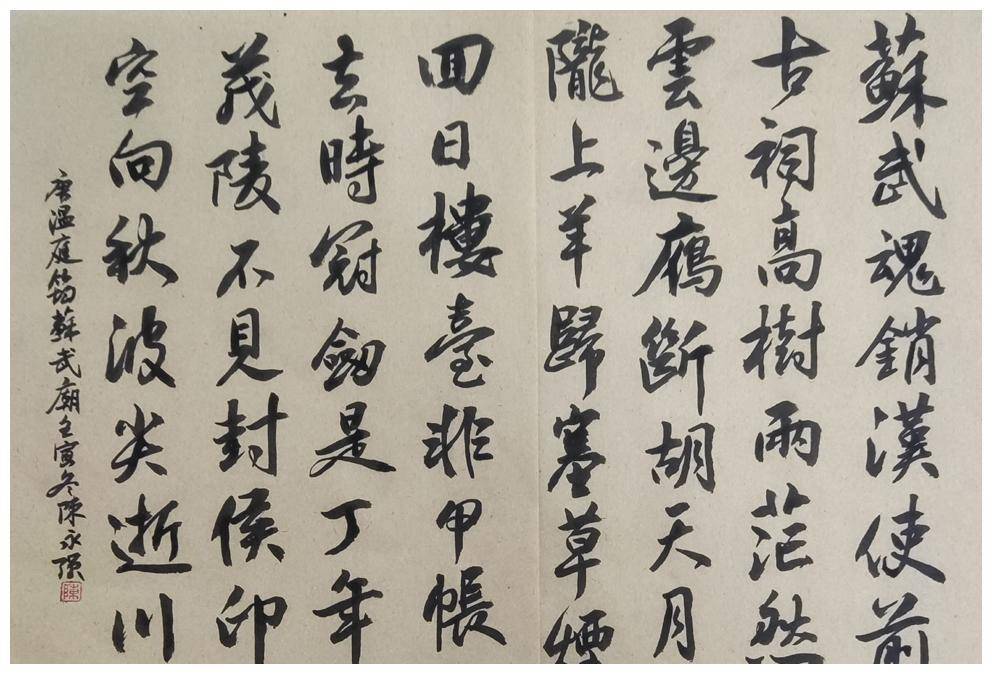 蘇武魂銷漢使前
古祠高樹兩茫然
雲邊鴈斷胡天月
隴上羊歸塞草煙
回日樓臺非甲帳
去時冠劒是丁年
茂陵不見封侯印
空向秋波哭逝川
唐温庭筠蘇武廟壬寅冬陳永
陳